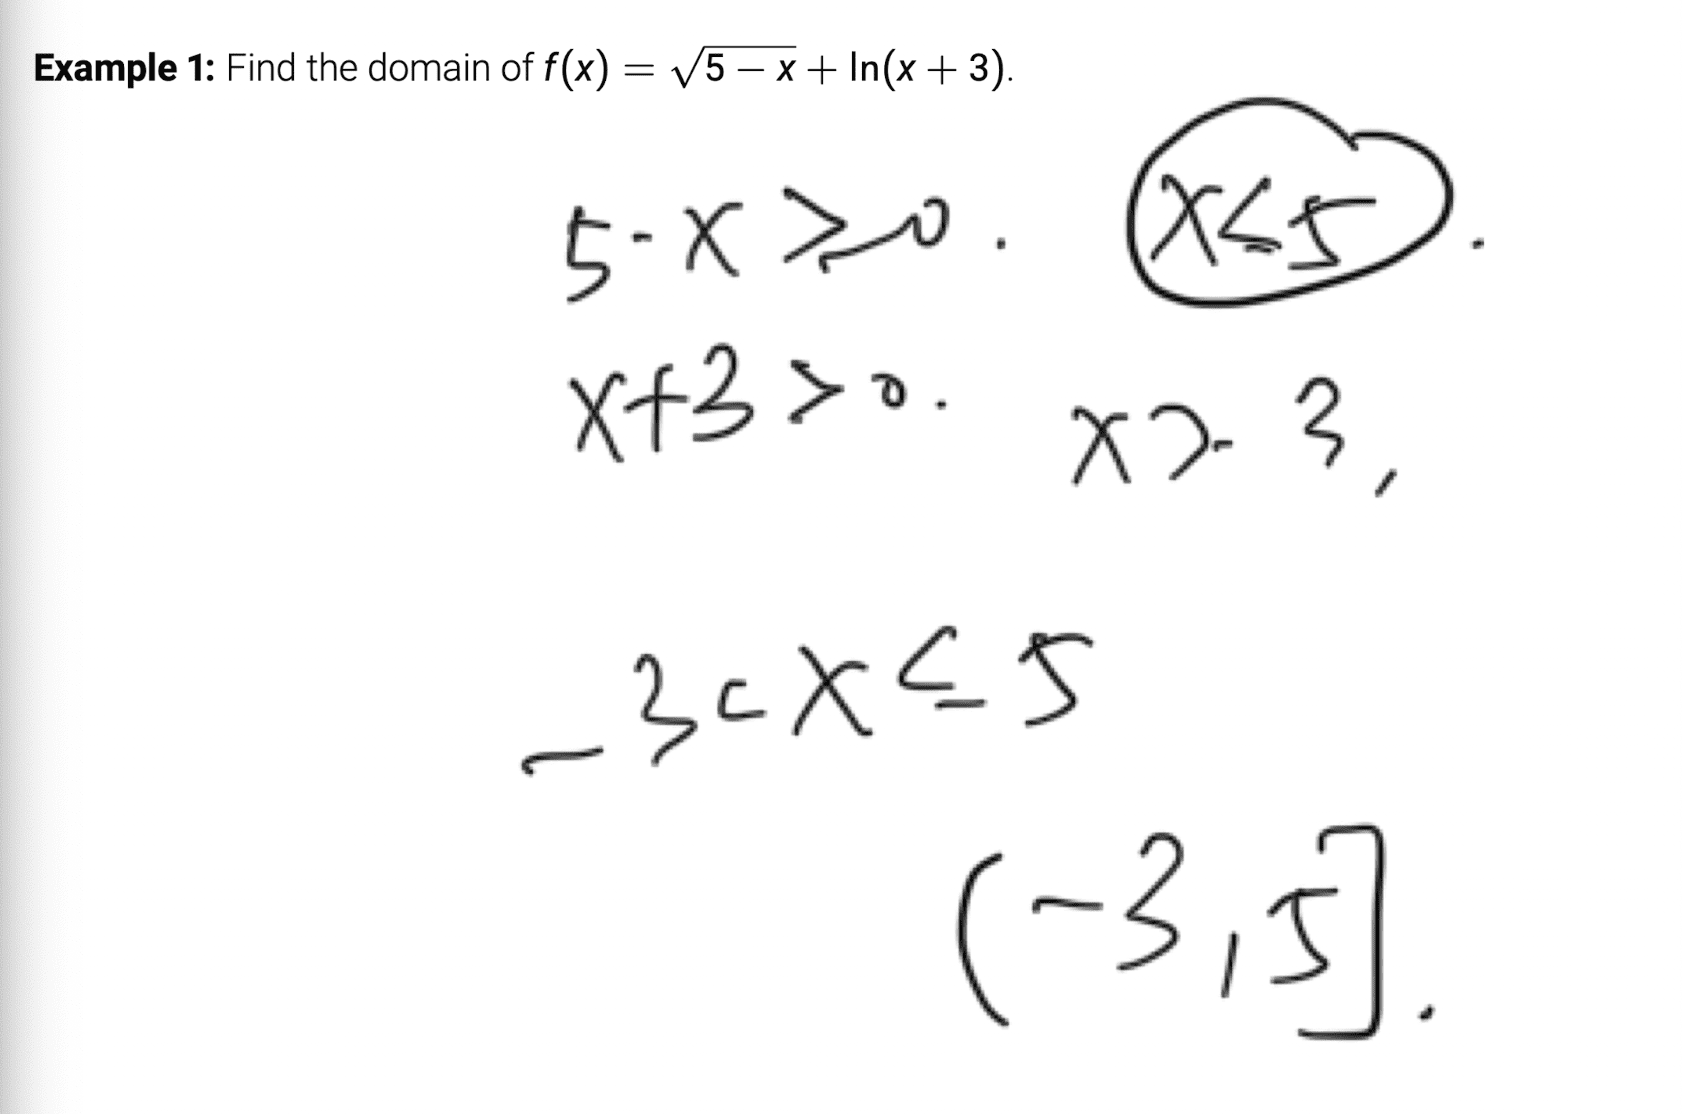 Example 1: Find the domain of f(x) = √(5 − x) + ln(x + 3).
5-x ≥ 0. x ≤ 5.
x+3 > 0. x > -3,
-3 < x ≤ 5
(-3, 5].